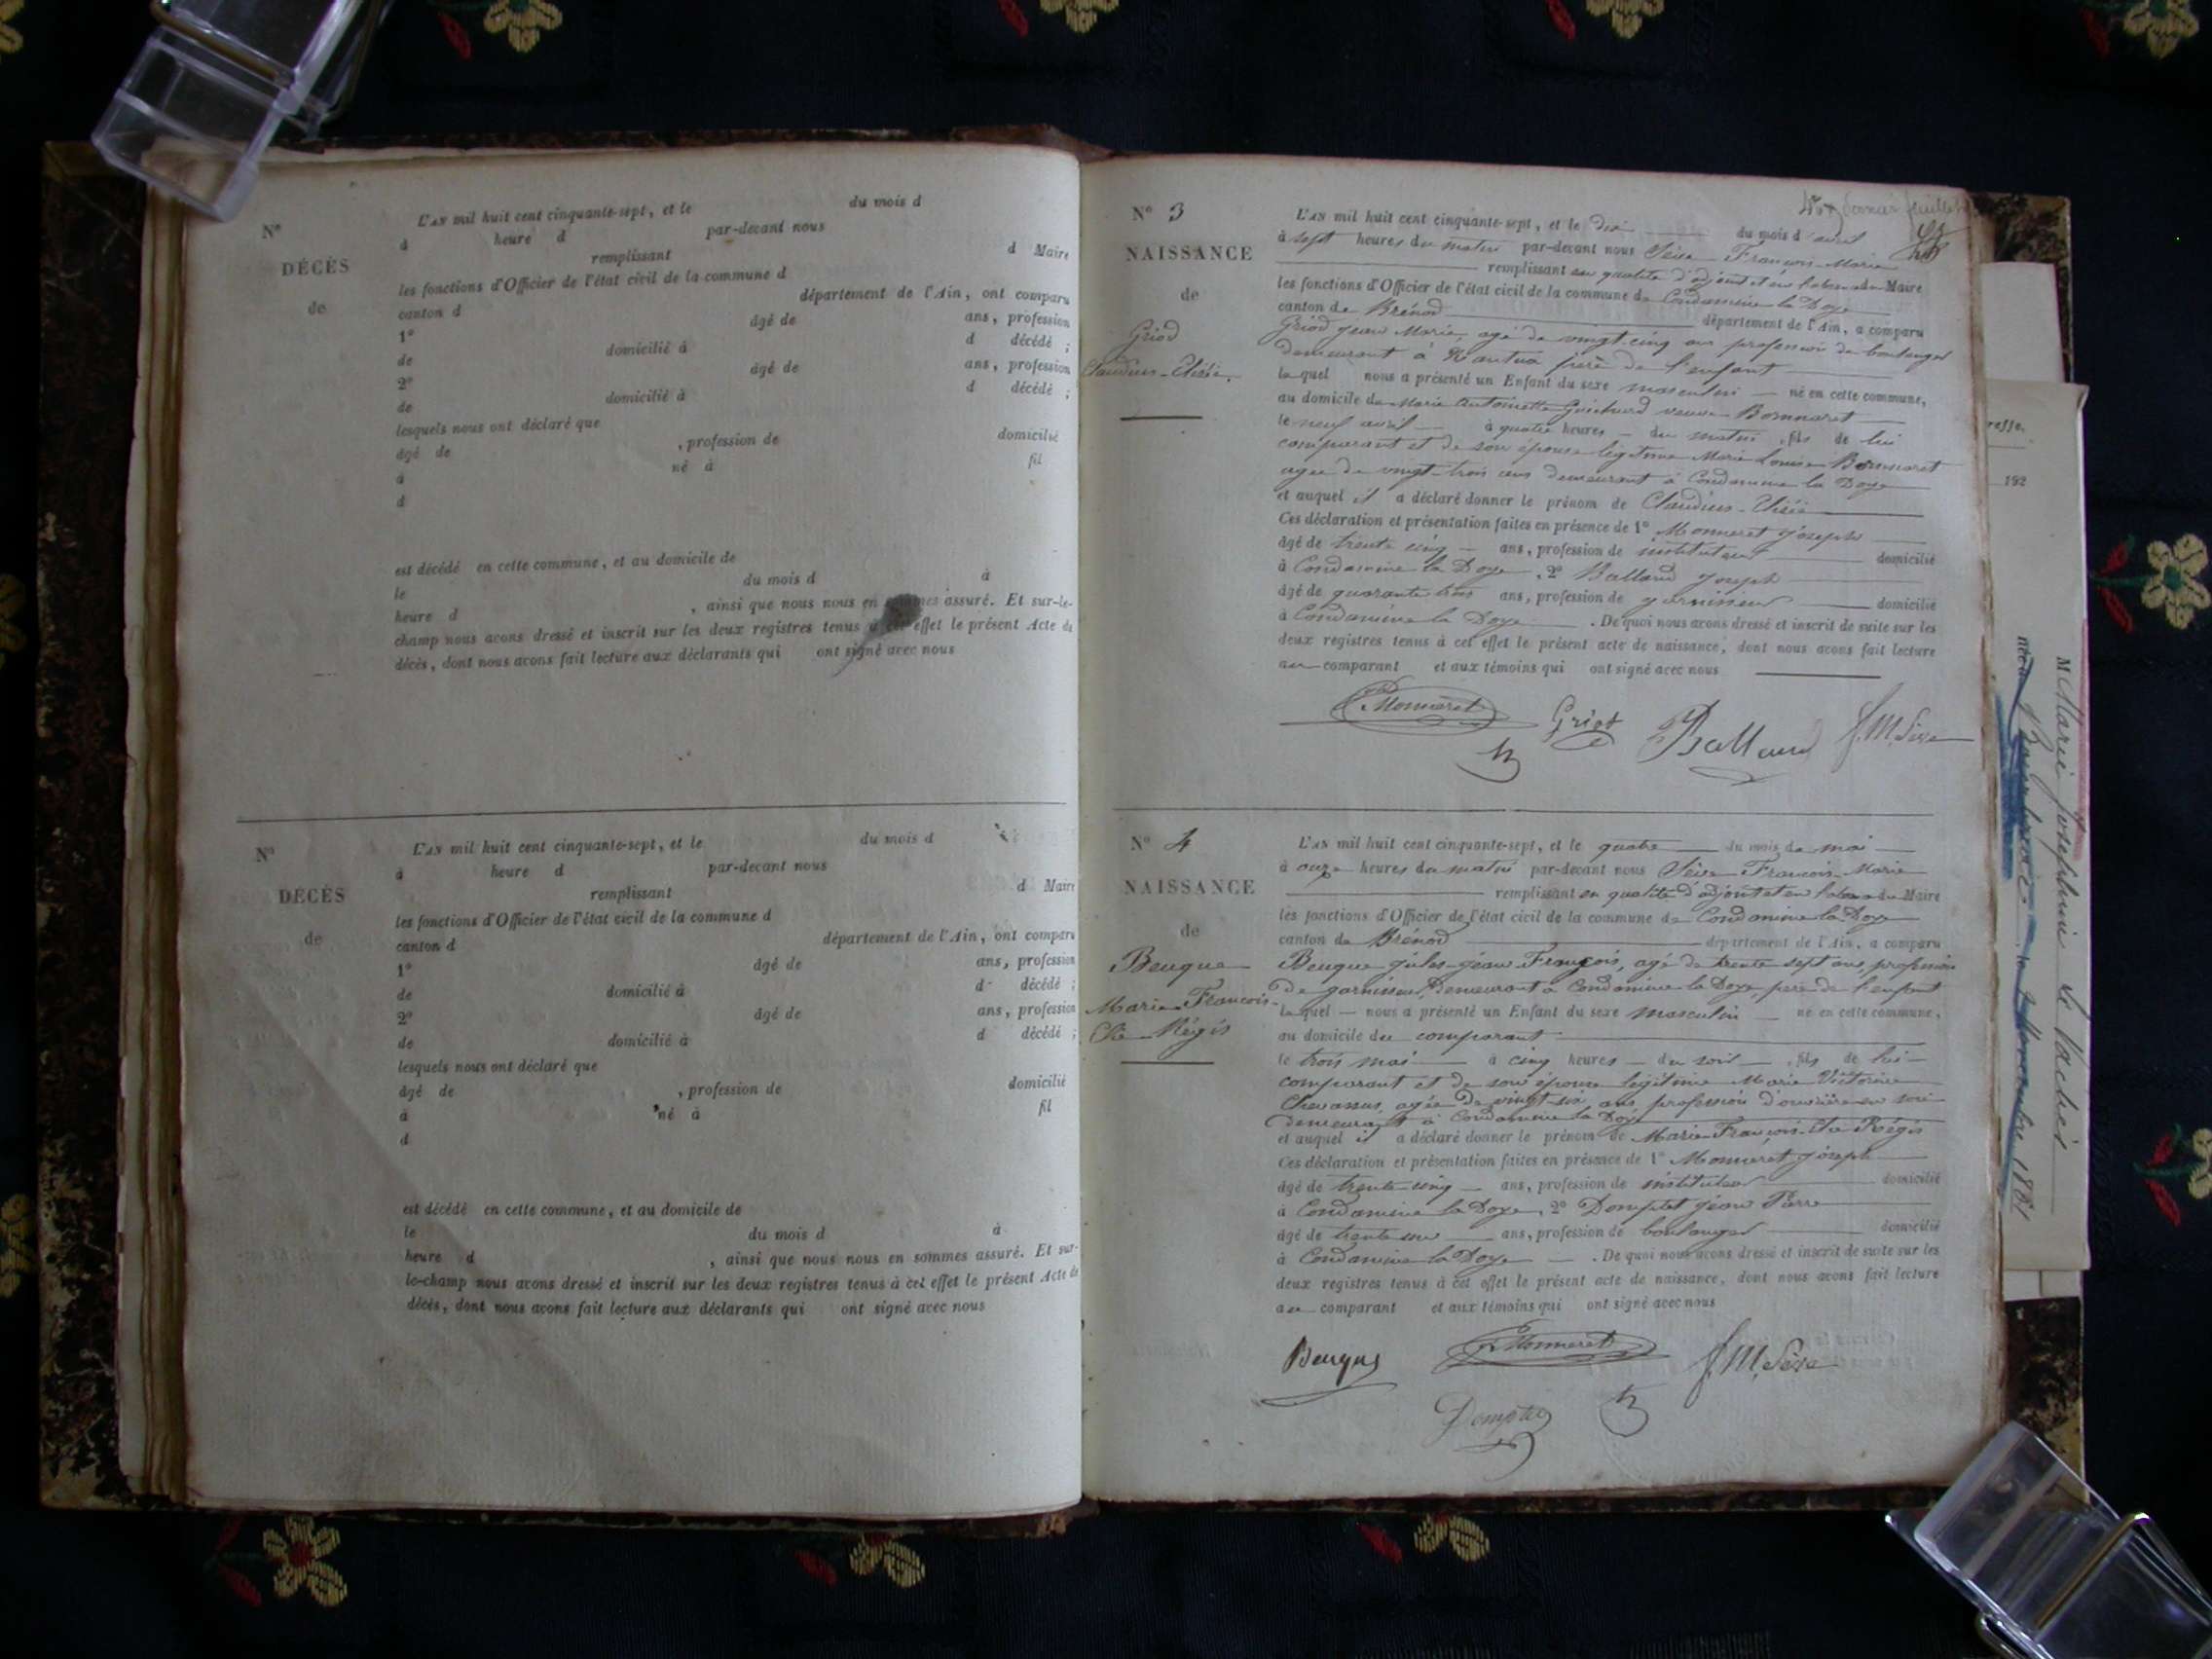 N°
DÉCÈS
de
L'AN mil huit cent cinquante-sept, et le du mois d
à heure d par-devant nous
remplissant d Maire
les fonctions d'Officier de l'état civil de la commune d
canton d département de l'Ain, ont comparu
1° âgé de ans, profession
de domicilié à d décédé ;
2° âgé de ans, profession
de domicilié à d décédé ;
lesquels nous ont déclaré que
âgé de , profession de domicilié
à né à fil
d
est décédé en cette commune, et au domicile de
le du mois d à
heure d , ainsi que nous nous en assuré. Et sur-le-
champ nous avons dressé et inscrit sur les deux registres tenus à effet le présent Acte de
décès, dont nous avons fait lecture aux déclarants qui ont signé avec nous
N°
DÉCÈS
de
L'AN mil huit cent cinquante-sept, et le du mois d
à heure d par-devant nous
remplissant d Maire
les fonctions d'Officier de l'état civil de la commune d
canton d département de l'Ain, ont comparu
1° âgé de ans, profession
de domicilié à d décédé ;
2° âgé de ans, profession
de domicilié à d décédé ;
lesquels nous ont déclaré que
âgé de , profession de domicilié
à né à fil
d
est décédé en cette commune, et au domicile de
le du mois d à
heure d , ainsi que nous nous en sommes assuré. Et sur-
le-champ nous avons dressé et inscrit sur les deux registres tenus à cet effet le présent Acte de
décès, dont nous avons fait lecture aux déclarants qui ont signé avec nous
N° 3
NAISSANCE
de
Griod
Claudius-Elisée.
L'AN mil huit cent cinquante-sept, et le dix du mois d'avril
à sept heures du matin par-devant nous Sève François-Marie
remplissant en qualité d'adjoint et en l'absence du Maire
les fonctions d'Officier de l'état civil de la commune de Condamine la Doye
canton de Brénod département de l'Ain, a comparu
Griod Jean Marie, agé de vingt-cinq ans profession de boulanger
demeurant à Nantua père de l'enfant
lequel nous a présenté un Enfant du sexe masculin né en cette commune,
au domicile de Marie Antoinette Guichard veuve Bonnaret
le neuf avril à quatre heures du matin, fils de lui
comparant et de son épouse légitime Marie Louise Bonnaret
agée de vingt-trois ans demeurant à Condamine la Doye
et auquel il a déclaré donner le prénom de Claudius-Elisée
Ces déclaration et présentation faites en présence de 1° Monneret Joseph
âgé de trente cinq ans, profession de instituteur domicilié
à Condamine la Doye, 2° Balland Joseph
âgé de quarante trois ans, profession de garnisseur domicilié
à Condamine la Doye. De quoi nous avons dressé et inscrit de suite sur les
deux registres tenus à cet effet le présent acte de naissance, dont nous avons fait lecture
au comparant et aux témoins qui ont signé avec nous
Monneret Griod Balland f. M. Sève
N° 4
NAISSANCE
de
Beugue
Marie-François-
Elie-Régis
L'AN mil huit cent cinquante-sept, et le quatre du mois de mai
à onze heures du matin par-devant nous Sève François-Marie
remplissant en qualité d'adjoint et en l'absence du Maire
les fonctions d'Officier de l'état civil de la commune de Condamine la Doye
canton de Brénod département de l'Ain, a comparu
Beugue Jules-Jean-François, agé de trente sept ans, profession
de garnisseur, demeurant à Condamine la Doye, père de l'enfant
lequel nous a présenté un Enfant du sexe masculin né en cette commune,
au domicile du comparant
le trois mai à cinq heures du soir, fils de lui
comparant et de son épouse légitime Marie Victorine
Chevassus, agée de vingt-six ans profession d'ouvrière en soie
demeurant à Condamine la Doye
et auquel il a déclaré donner le prénom de Marie-François-Elie-Régis
Ces déclaration et présentation faites en présence de 1° Monneret Joseph
âgé de trente cinq ans, profession de instituteur domicilié
à Condamine la Doye, 2° Domptet Jean Pierre
âgé de trente ans, profession de boulanger domicilié
à Condamine la Doye. De quoi nous avons dressé et inscrit de suite sur les
deux registres tenus à cet effet le présent acte de naissance, dont nous avons fait lecture
au comparant et aux témoins qui ont signé avec nous
Beugue Monneret f. M. Sève
Domptet
192